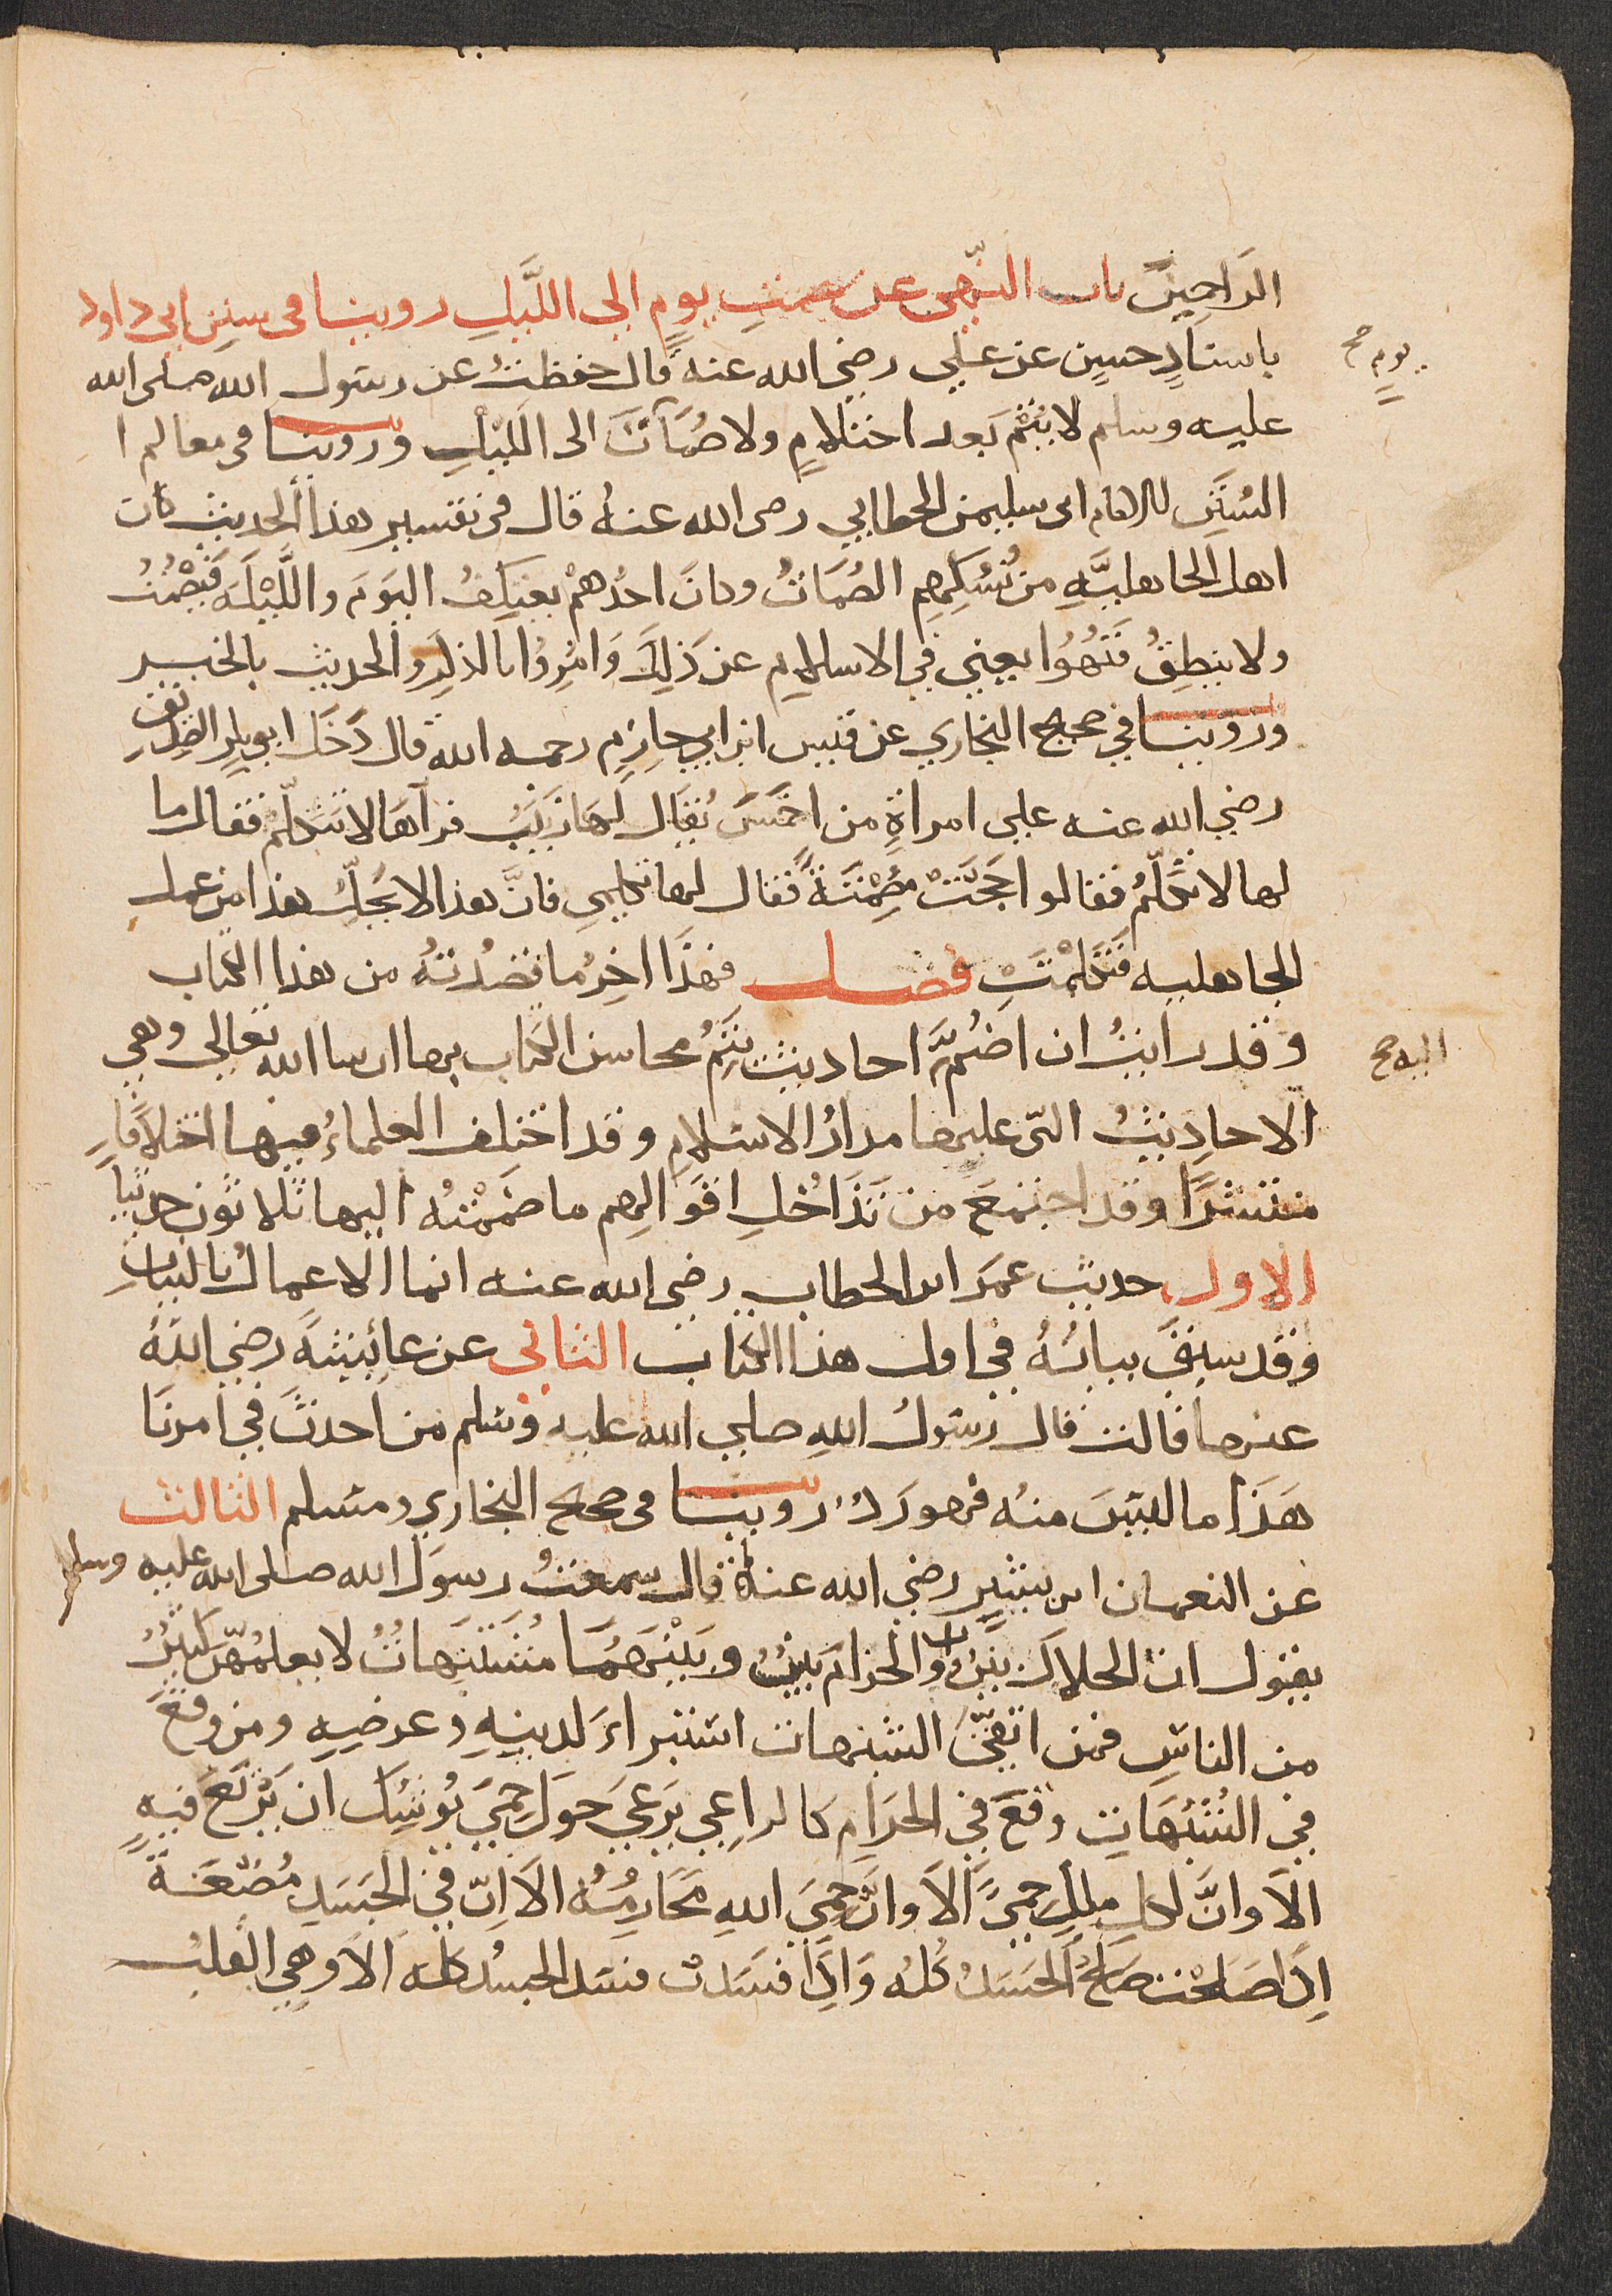 الراحمين باب النهي عن صمت يوم الى الليل روينا في سنن ابي داود
باسنادٍ حسنٍ عن علي رضي الله عنه قال حفظت عن رسول الله صلى الله
يوم صح
عليه وسلم لا يُتْم بَعد احتلامٍ ولا صُمَات يوم الى الليْلِ وروينا في معالم ا
السُنَنِ للامام ابي سليمن الخطابي رضى الله عنهُ قال في تفسير هذا الحديث كان
اهل الجاهليَّهِ من نُسُكِهِم الصُمَاتُ وكانَ احدُهمْ يعتكفُ اليَومَ واللَّيْلَهَ فيَصْمُتُ
ولا ينطِقُ فَنُهُوا يعني في الاسلام عن ذَلِكَ وَامُرِوُا بالذكرِ والحديث بالخير
وروينا في صحيح البخاري عن قيس ابن ابي حازِمٍ رحمه الله قال دَخَل ابو بكرٍ الصديق
رضي الله عنه على امراةٍ من احْمَسَ يُقال لَهَا زَيْنَبُ فرآهَا لا تتكلّمُ فقال ما
لها لا تتكلّمُ فقالوا حَجَّتْ مُصْمِتَةً فقال لها تكلمي فانَّ هذا لا يحَلُّ هذا من عمل
الجاهليه فَتَكَلَّمَتْ فصل فهذَا اخِرُ ما قصدتُهُ من هذا الكتاب
وقد رايتُ ان اضُمَّ احاديث يَتِمُّ محاسن الكتاب بها ان شا الله تعالى وهي
اليه صح
الاحاديثُ التّي عليها مدارُ الاسلامِ وقد اختلف العلماءُ فيها اختلافًا
منتشرًا وقد اجتمعَ من تَدَاخُلِ اقوَالِهم ما ضَمَمْتُهُ اليها ثلاثون حديثًا
الاول حديث عمَر ابن الخطاب رضي الله عنه انما الاعمالُ بالنياتِ
وقد سبَقَ بيانُهُ في اول هذا الكتاب الثاني عن عائيشةَ رضي اللهُ
عنها قالت قال رسولُ اللهِ صلي الله عليه وسلم من احدثَ في امرنَا
هَذَا ما ليسَ منهُ فهو رَدٌ روينا في صحيح البخاري ومسلم الثالث
عن النعمان ابن بشيرٍ رضي الله عنهُ قال سمعتُ رسوَل الله صلى الله عليه وسلم
يقول ان الحلالَ بَيّنٌ وان الحرامَ بَينٌ وبَيْنَهُمَا مُشتَبِهَاتُ لا يعلمُهُّن كثيرُ
من الناسِ فمن اتقَىَ الشبهات استبراءَ لدينِهِ وعرضِهِ ومن وقَعَ
في الشُبُهَاتِ وقعَ في الحرَامِ كالراعِي يَرْعَي حَوَل الحِمَيَ يُوشِكُ ان يَرْتَعَ فيهِ
الَا وانَّ لكل ملكٍ حِميً الَا وانَّ حِمَيَ اللهِ مَحَارِمُهُ الَا اِنَّ في الجَسَدِ مُضْغَةً
اِذَا صَلحَت صَلحُ الجَسَدُ كُلهُ وَاذَا فسَدَت فسَد الجسُدُ كلهُ الَا وهِي القلبُ